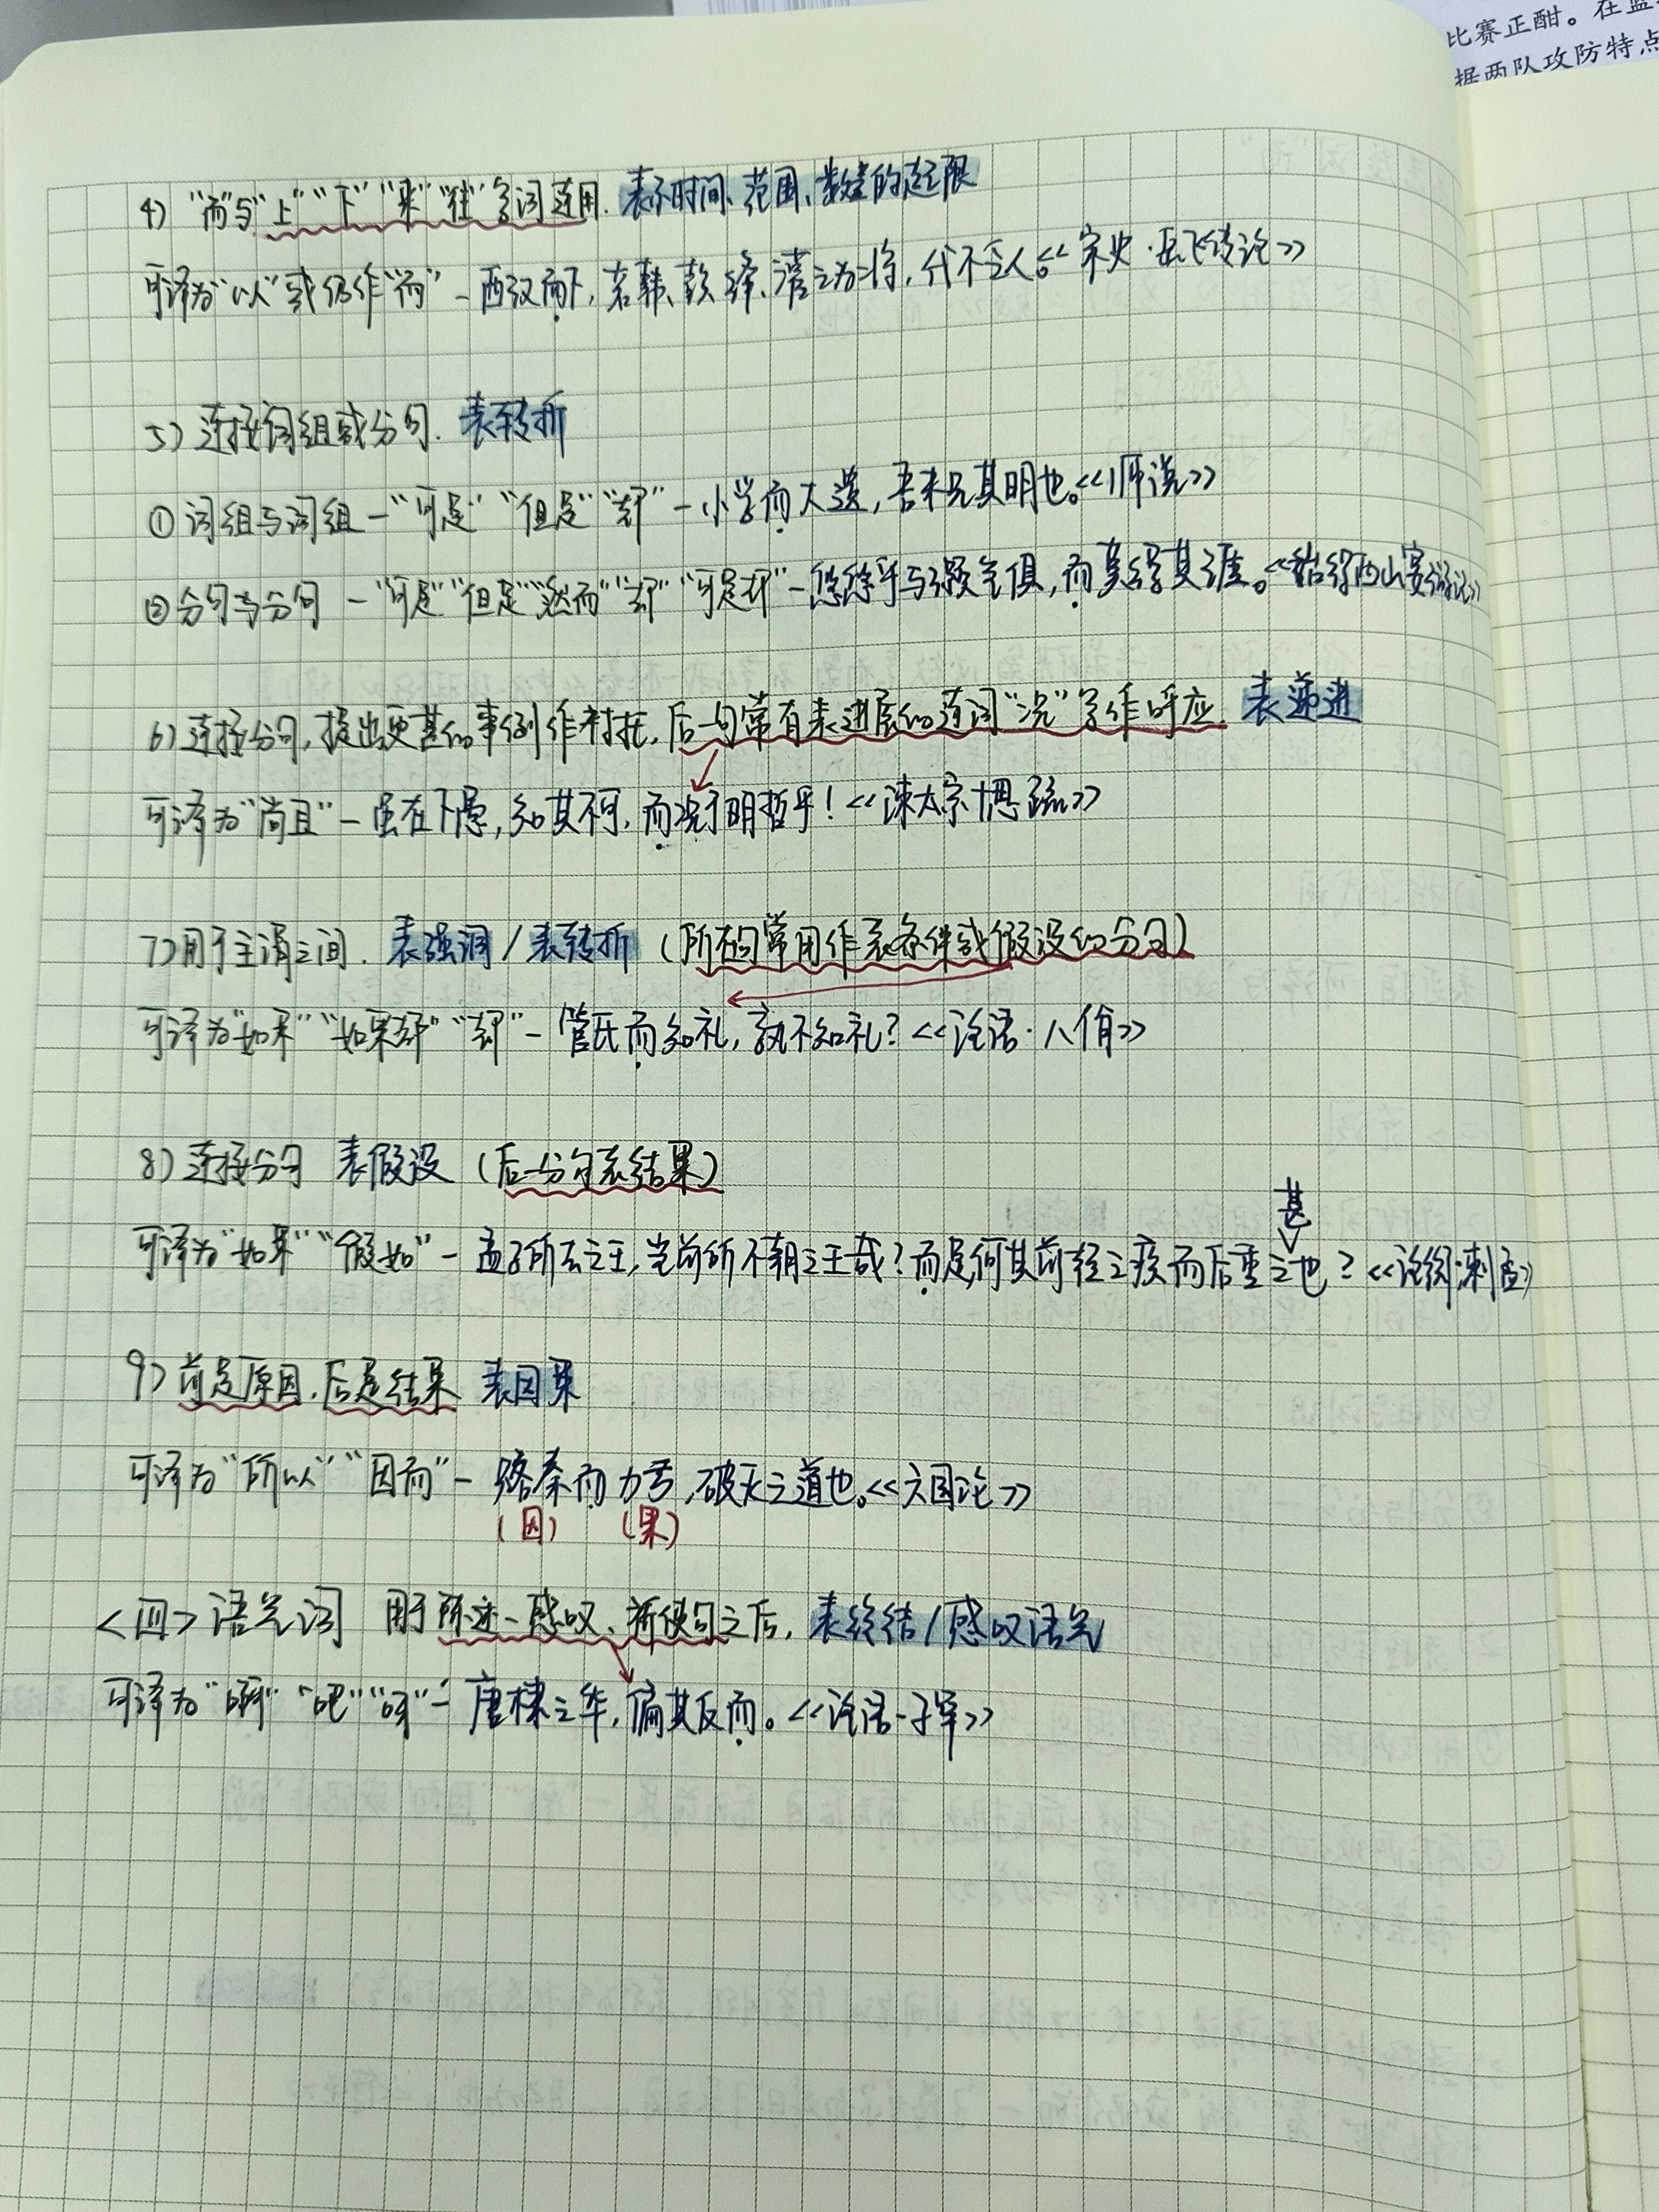 比赛正酣。在蓝
据两队攻防特点
4) “而”与“上”“下”“来”“往”等词连用. 表示时间、范围、数量的起限
可译为“以”或仍作“而” - 西汉而下, 若韩、彭、绛、灌之为将, 代不乏人。《宋史·岳飞传论》
5) 连接词组或分句. 表转折
① 词组与词组 - “可是”“但是”“却” - 小学而大遗, 吾未见其明也。《师说》
② 分句与分句 - “可是”“但是”“然而”“却”“可是却” - 悠悠乎与颢气俱, 而莫得其涯。《始得西山宴游记》
6) 连接分句, 提出更甚的事例作衬托, 后一句常有表进层的连词“况”字作呼应. 表递进
可译为“尚且” - 虽在下愚, 知其不可, 而况于明哲乎! 《谏太宗十思疏》
7) 用于主谓之间. 表强调 / 表转折 (所在句常用作表条件或假设的分句)
可译为“如果”“如果却”“却” - 管氏而知礼, 孰不知礼? 《论语·八佾》
8) 连接分句 表假设 (后一分句表结果)
甚
可译为“如果”“假如” - 孟子所云之王, 岂前所不朝之王哉? 而是, 何其前轻之疾而后重之也? 《论衡·刺孟》
9) 前是原因, 后是结果 表因果
可译为“所以”“因而” - 赂秦而力亏, 破灭之道也。《六国论》
(因) (果)
<四> 语气词 用于陈述、感叹、祈使句之后, 表终结 / 感叹语气
可译为“啊”“吧”“呀” - 唐棣之华, 偏其反而。《论语·子罕》